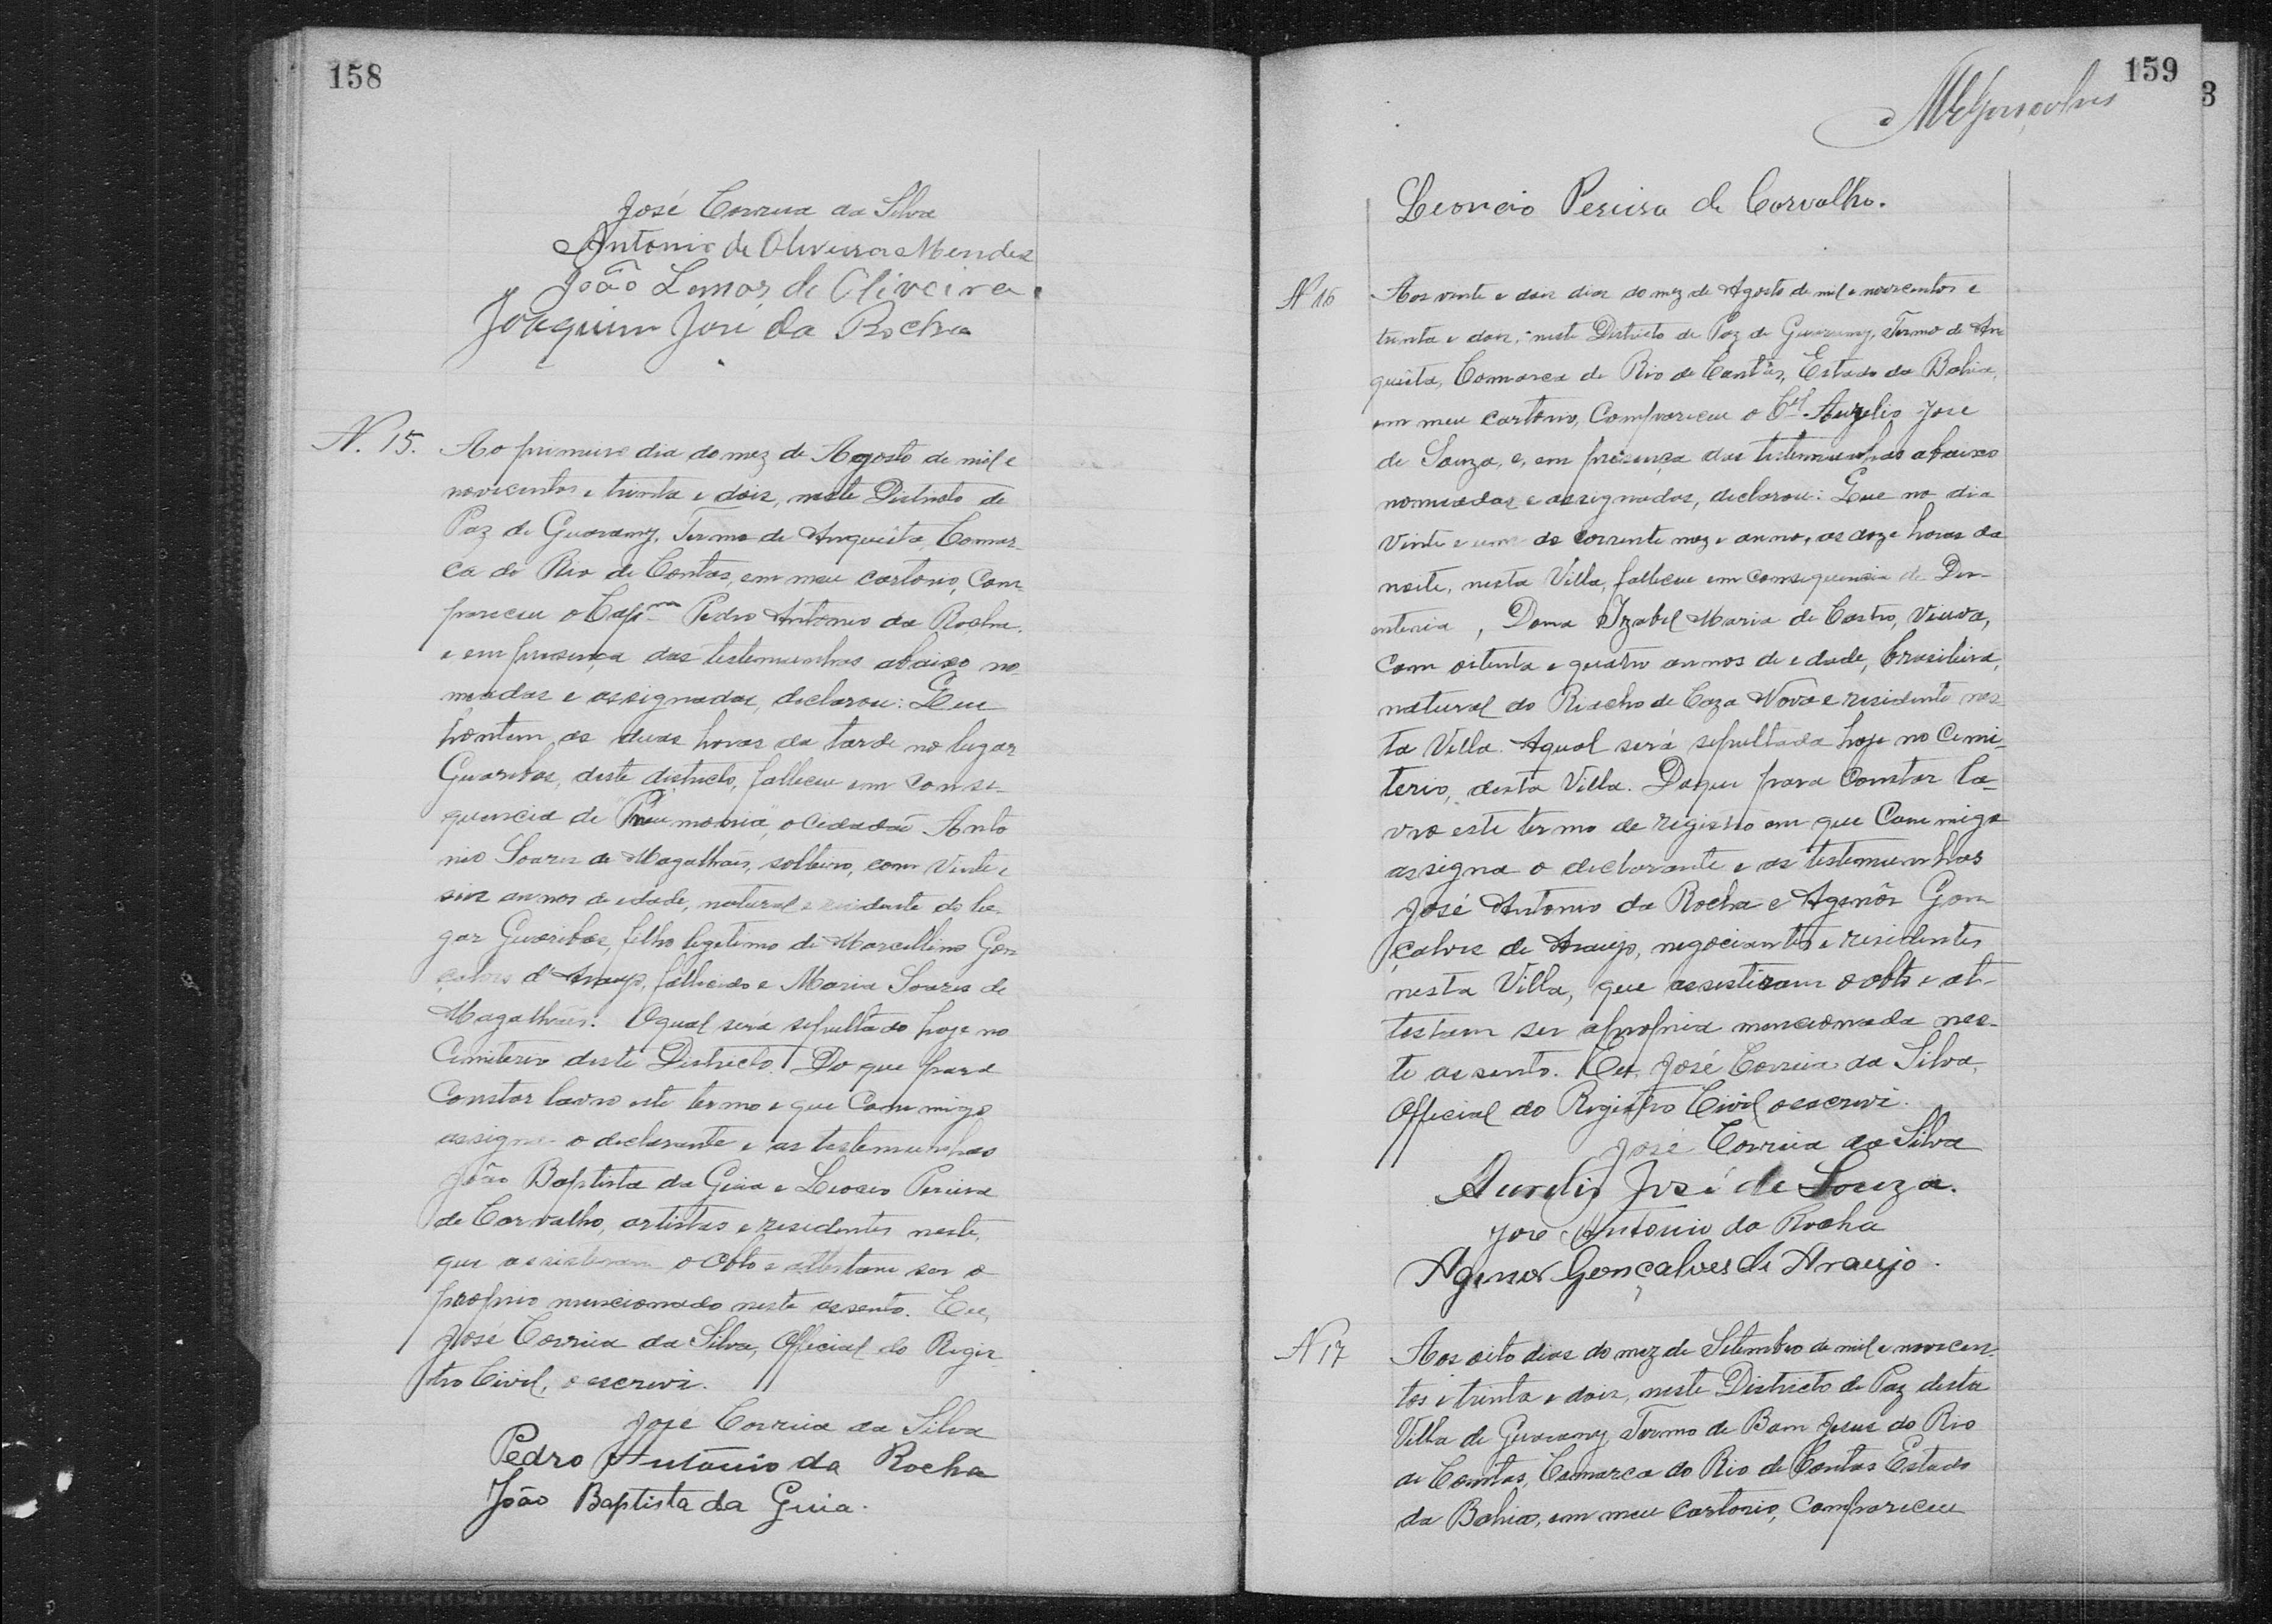 158
José Correia da Silva
Antonio de Oliveira Mendes
João Lemos de Oliveira.
Joaquim José da Rocha
N. 15. Ao primeiro dia do mez de Agosto de mil e
novecentos e trinta e dois, neste Districto de
Paz de Guarany, Termo de Anquieta, Comar-
ca do Rio de Contas, em meu cartorio, Com-
pareceu o Capm Pedro Antonio da Rocha,
e em presença das testemunhas abaixo no-
meadas e assignadas, declarou: Que
hontem, as duas horas da tarde no lugar
Guaribas, deste districto, falleceu em conse-
quencia de "Pneumonia", o cidadão Anto
nio Soares de Magalhães, solteiro, com vinte e
seis annos de edade, natural e residente do lu-
gar Guaribas, filho legitimo de Marcellino Gon
çalves d'Araujo, fallecido e Maria Soares de
Magalhães. O qual será sepultado hoje no
Cimiterio deste Districto. Do que para
Constar lavro este termo e que Commigo
assigna o declarante e as testemunhas
João Baptista da Guia e Leoncio Pereira
de Carvalho, artistas e residentes neste,
que assisteram o obto e attestam ser o
proprio mencionado neste assento. Eu,
José Correia da Silva, Official do Regis-
tro Civil, o escrevi.
José Correia da Silva
Pedro Antonio da Rocha
João Baptista da Guia.
159
3
Leoncio Pereira de Carvalho.
N 16 Aos vinte e dois dias do mez de Agosto de mil e novecentos e
trinta e dois, neste Districto de Paz de Guarany, Termo de An
quieta, Comarca de Rio de Contas, Estado da Bahia,
em meu cartorio, Compareceu o Cel Aurelio José
de Souza, e, em presença das testemunhas abaixo
nomeadas e assignadas, declarou: Que no dia
vinte e um do corrente mez e anno, as doze horas da
noite, nesta Villa, falleceu em consequencia de Den-
enteria, Dona Izabel Maria de Castro, Viuva,
com oitenta e quatro annos de edade, brasileira,
natural do Riacho de Caza Nova e residente nes-
ta Villa. Aqual será sepultada hoje no Cimi-
terio, desta Villa. Doque para Constar la-
vro este termo de registro em que Commigo
assigna o declarante e as testemunhas
José Antonio da Rocha e Agenôr Gon
çalves de Araujo, negociantes e residentes
nesta Villa, que assisteram o obto e at-
testam ser apropria mencionada nes-
te assento. Eu, José Correia da Silva,
Official do Registro Civil o escrevi.
José Correia da Silva
Aurelio José de Souza.
José Antonio da Rocha
Agenor Gonçalves de Araujo.
N 17 Aos oito dias do mez de Setembro de mil e novecen-
tos e trinta e dois, neste Districto de Paz desta
Villa de Guarany Termo de Bom Jesus do Rio
de Contas, Comarca do Rio de Contas Estado
da Bahia, em meu cartorio, Compareceu